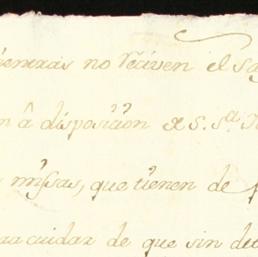 no reciven el
â disposicion de S. S.ª
missas, que tienen de
cuidar de que sin